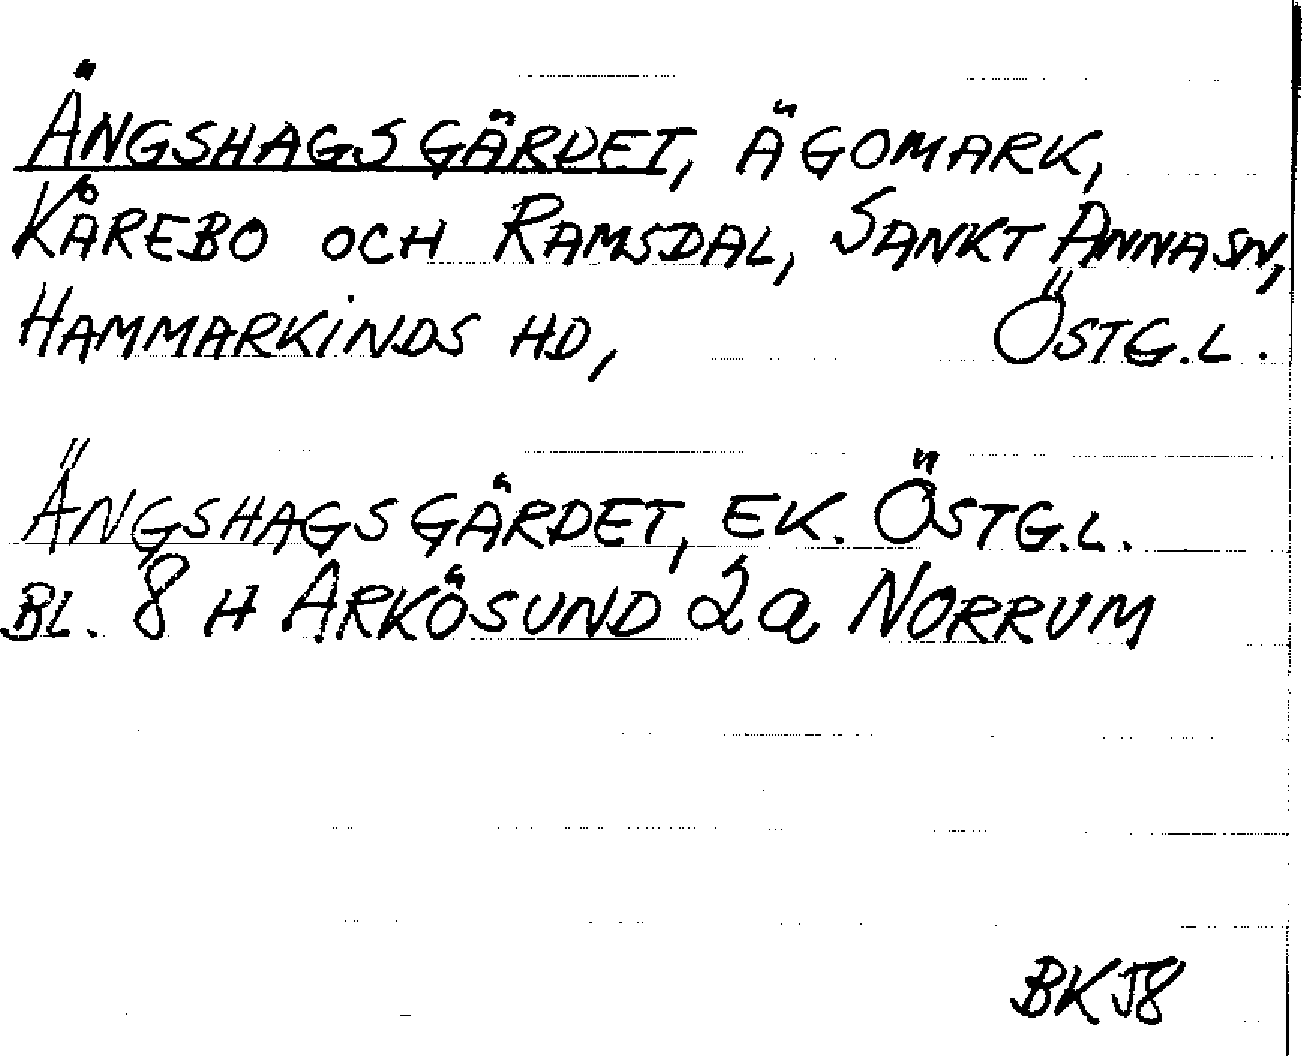 ÄNGSHAGSGÄRDET, ÄGOMARK,
KÅREBO OCH RAMSDAL, SANKT ANNA SN,
HAMMARKINDS HD, ÖSTG.L.
ÄNGSHAGSGÄRDET, EK. ÖSTG.L.
BL. 8 H ARKÖSUND 2a NORRUM
BKJ8